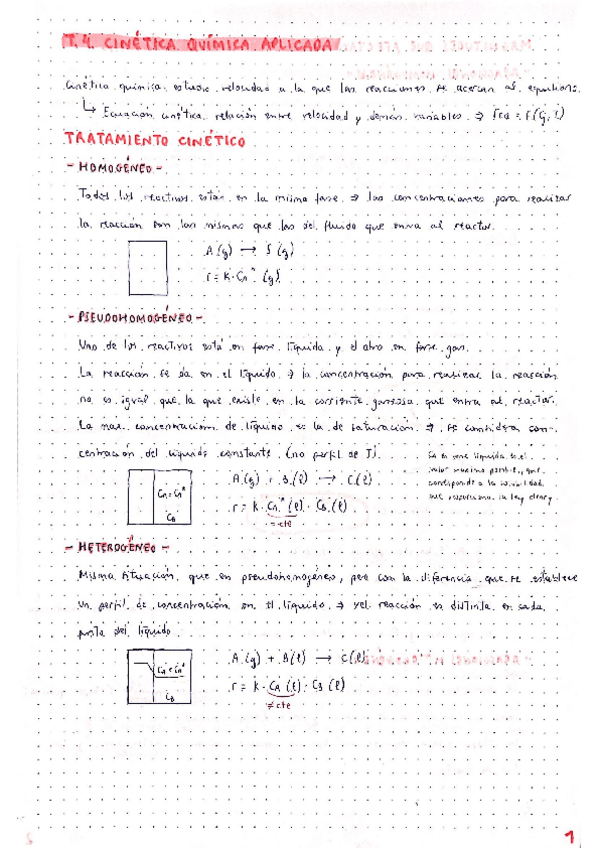 T.4. CINÉTICA QUÍMICA APLICADA
Cinética química: estudio velocidad a la que las reacciones se acercan al equilibrio.
↳ Ecuación cinética: relación entre velocidad y demás variables ⇒ = f(Cᵢ,T)
TRATAMIENTO CINÉTICO
- HOMOGÉNEO -
Todos los reactivos están en la misma fase ⇒ las concentraciones para realizar
la reacción son las mismas que las del fluido que entra al reactor.
A(g) → S(g)
r = k·Cₐⁿ (g)
- PSEUDOHOMOGÉNEO -
Uno de los reactivos está en fase líquida y el otro en fase gas.
La reacción se da en el líquido ⇒ la concentración para realizar la reacción
no es igual que la que existe en la corriente gaseosa que entra al reactor.
La max. concentración de líquido es la de saturación ⇒ se considera con-
centración del líquido constante (no perfil de T).
CA en fase líquida es el
valor máximo posible, que
corresponde a la
Henry
A(g) + B(l) → C(l)
CA = CA*
CB
r = k·CA*(l)·CB(l)
= cte
- HETEROGÉNEO -
Misma situación que en pseudohomogéneo, pero con la diferencia que se establece
un perfil de concentración en el líquido ⇒ vel reacción es distinta en cada
punto del líquido.
A(g) + B(l) → C(l)
CA = CA*
CB
r = k·CA(l)·CB(l)
≠ cte
1